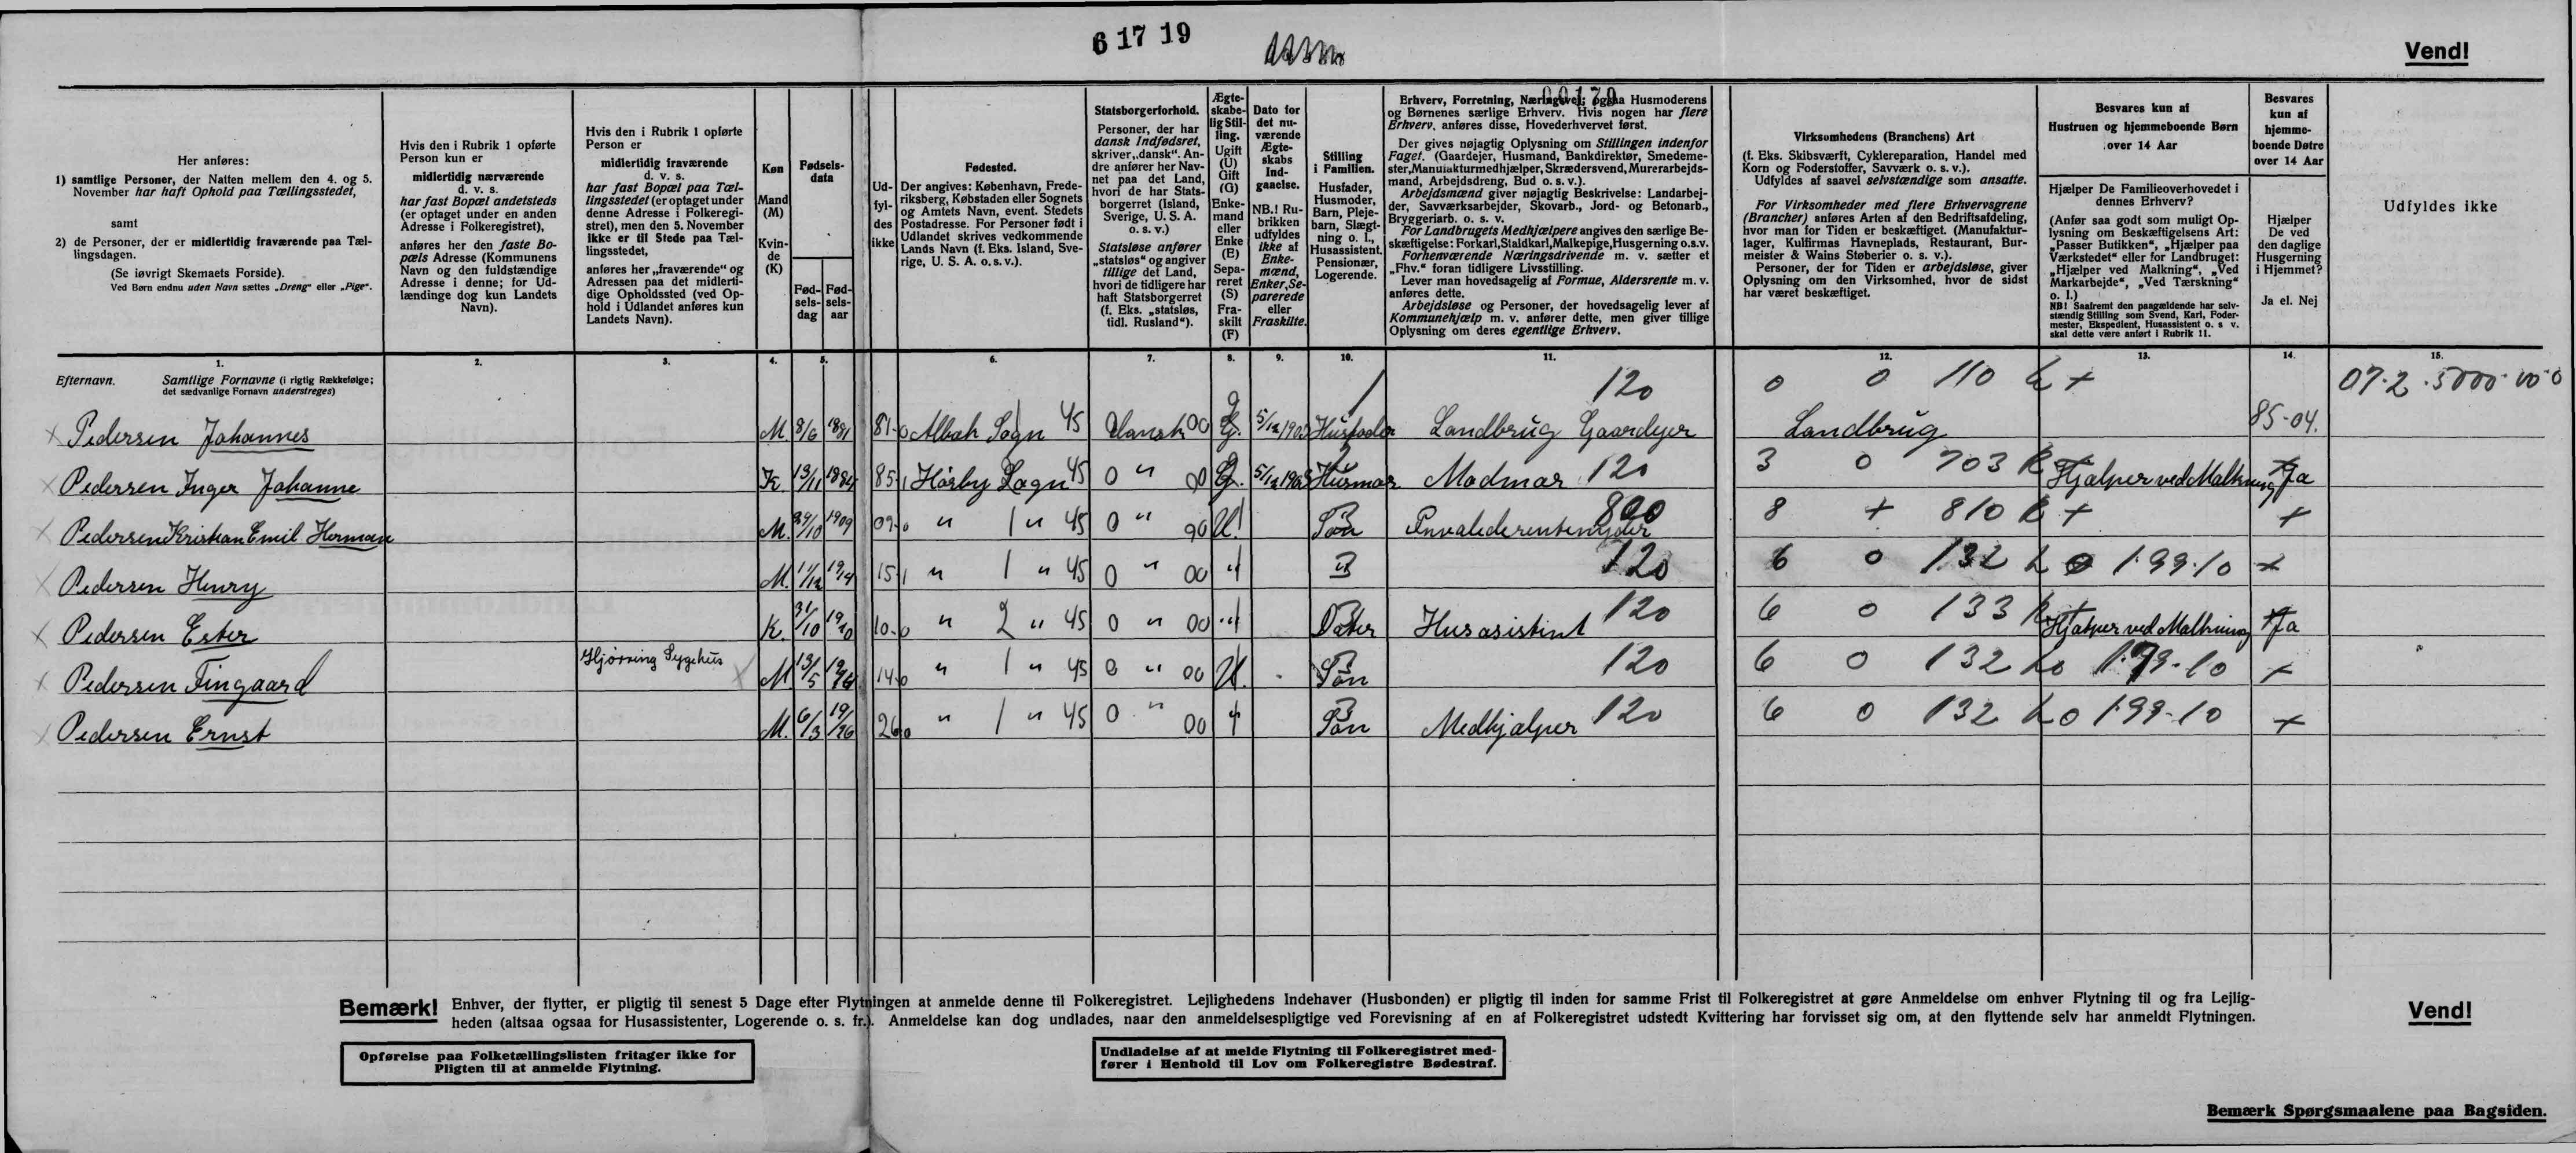 6 17 19
Vend!
00170
Her anføres:
1) samtlige Personer, der Natten mellem den 4. og 5.
November har haft Ophold paa Tællingsstedet,
samt
2) de Personer, der er midlertidig fraværende paa Tæl-
lingsdagen.
(Se iøvrigt Skemaets Forside).
Ved Børn endnu uden Navn sættes „Dreng“ eller „Pige“.
Hvis den i Rubrik 1 opførte
Person kun er
midlertidig nærværende
d. v. s.
har fast Bopæl andetsteds
(er optaget under en anden
Adresse i Folkeregistret),
anføres her den faste Bo-
pæls Adresse (Kommunens
Navn og den fuldstændige
Adresse i denne; for Ud-
lændinge dog kun Landets
Navn).
Hvis den i Rubrik 1 opførte
Person er
midlertidig fraværende
d. v. s.
har fast Bopæl paa Tæl-
lingsstedet (er optaget under
denne Adresse i Folkeregi-
stret), men den 5. November
ikke er til Stede paa Tæl-
lingsstedet,
anføres her „fraværende“ og
Adressen paa det midlerti-
dige Opholdssted (ved Op-
hold i Udlandet anføres kun
Landets Navn).
Køn
Mand
(M)
Kvin-
de
(K)
Fødsels-
data
Fød-
sels-
dag
Fød-
sels-
aar
Ud-
fyl-
des
ikke
Fødested.
Der angives: København, Frede-
riksberg, Købstaden eller Sognets
og Amtets Navn, event. Stedets
Postadresse. For Personer født i
Udlandet skrives vedkommende
Lands Navn (f. Eks. Island, Sve-
rige, U. S. A. o. s. v.).
Statsborgerforhold.
Personer, der har
dansk Indfødsret,
skriver „dansk“. An-
dre anfører her Nav-
net paa det Land,
hvori de har Stats-
borgerret (Island,
Sverige, U. S. A.
o. s. v.)
Statsløse anfører
„statsløs“ og angiver
tillige det Land,
hvori de tidligere har
haft Statsborgerret
(f. Eks. „statsløs,
tidl. Rusland“).
Ægte-
skabe-
lig Stil-
ling.
Ugift
(U)
Gift
(G)
Enke-
mand
eller
Enke
(E)
Sepa-
reret
(S)
Fra-
skilt
(F)
Dato for
det nu-
værende
Ægte-
skabs
Ind-
gaaelse.
NB.! Ru-
brikken
udfyldes
ikke af
Enke-
mænd,
Enker, Se-
parerede
eller
Fraskilte.
Stilling
i Familien.
Husfader,
Husmoder,
Barn, Pleje-
barn, Slægt-
ning o. l.,
Husassistent,
Pensionær,
Logerende.
Erhverv, Forretning, Næringsvej; ogsaa Husmoderens
og Børnenes særlige Erhverv. Hvis nogen har flere
Erhverv, anføres disse, Hovederhvervet først.
Der gives nøjagtig Oplysning om Stillingen indenfor
Faget. (Gaardejer, Husmand, Bankdirektør, Smedeme-
ster, Manufakturmedhjælper, Skrædersvend, Murerarbejds-
mand, Arbejdsdreng, Bud o. s. v.).
Arbejdsmænd giver nøjagtig Beskrivelse: Landarbej-
der, Savværksarbejder, Skovarb., Jord- og Betonarb.,
Bryggeriarb. o. s. v.
For Landbrugets Medhjælpere angives den særlige Be-
skæftigelse: Forkarl, Staldkarl, Malkepige, Husgerning o.s.v.
Forhenværende Næringsdrivende m. v. sætter et
„Fhv.“ foran tidligere Livsstilling.
Lever man hovedsagelig af Formue, Aldersrente m. v.
anføres dette.
Arbejdsløse og Personer, der hovedsagelig lever af
Kommunehjælp m. v. anfører dette, men giver tillige
Oplysning om deres egentlige Erhverv.
Virksomhedens (Branchens) Art
(f. Eks. Skibsværft, Cyklereparation, Handel med
Korn og Foderstoffer, Savværk o. s. v.).
Udfyldes af saavel selvstændige som ansatte.
For Virksomheder med flere Erhvervsgrene
(Brancher) anføres Arten af den Bedriftsafdeling,
hvor man for Tiden er beskæftiget. (Manufaktur-
lager, Kulfirmas Havneplads, Restaurant, Bur-
meister & Wains Støberier o. s. v.).
Personer, der for Tiden er arbejdsløse, giver
Oplysning om den Virksomhed, hvor de sidst
har været beskæftiget.
Besvares kun af
Hustruen og hjemmeboende Børn
over 14 Aar
Hjælper De Familieoverhovedet i
dennes Erhverv?
(Anfør saa godt som muligt Op-
lysning om Beskæftigelsens Art:
„Passer Butikken“, „Hjælper paa
Værkstedet“ eller for Landbruget:
„Hjælper ved Malkning“, „Ved
Markarbejde“, „Ved Tærskning“
o. l.)
NB! Saafremt den paagældende har selv-
stændig Stilling som Svend, Karl, Foder-
mester, Ekspedient, Husassistent o. s v.
skal dette være anført i Rubrik 11.
Besvares
kun af
hjemme-
boende Døtre
over 14 Aar
Hjælper
De ved
den daglige
Husgerning
i Hjemmet?
Ja el. Nej
Udfyldes ikke
1. 2. 3. 4. 5. 6. 7. 8. 9. 10. 11. 12. 13. 14. 15.
Efternavn. Samtlige Fornavne (i rigtig Rækkefølge;
det sædvanlige Fornavn understreges)
120 0 0 110 + 07-2
Pedersen Johannes M 8/6 1881 81-0 Albæk Sogn 45 Dansk 00 G. 5/12 Husfader Landbrug Gaardejer Landbrug 85-04.
Pedersen Inger Johanne K. 13/11 1884 85-1 Hørby Sogn 45 0 " 00 G. 5/12 Husmor Madmor 120 3 0 703 Hjælper ved Malkning Ja
Pedersen Kristian Emil Herman M. 24/10 1909 09-0 " 1 " 45 0 " 00 U. Søn Invaliderentenyder 800 8 + 810 + +
Pedersen Henry M. 11/12 1914 15-1 " 1 " 45 0 " 00 " 120 6 0 132 0 199-10 +
Pedersen Ester K. 31/10 1910 10-0 " 2 " 45 0 " 00 " Datter Husasistint 120 6 0 133 Hjælper ved Malkning Ja
Pedersen Fingaard Hjørring Sygehus M. 13/5 14-0 " 1 " 45 0 " 00 U. Søn 120 6 0 132 199-10 +
Pedersen Ernst M. 6/3 19/26 26-0 " 1 " 45 0 " 00 " Søn Medhjælper 120 6 0 132 199-10 +
Bemærk! Enhver, der flytter, er pligtig til senest 5 Dage efter Flytningen at anmelde denne til Folkeregistret. Lejlighedens Indehaver (Husbonden) er pligtig til inden for samme Frist til Folkeregistret at gøre Anmeldelse om enhver Flytning til og fra Lejlig-
heden (altsaa ogsaa for Husassistenter, Logerende o. s. fr.). Anmeldelse kan dog undlades, naar den anmeldelsespligtige ved Forevisning af en af Folkeregistret udstedt Kvittering har forvisset sig om, at den flyttende selv har anmeldt Flytningen.
Vend!
Opførelse paa Folketællingslisten fritager ikke for
Pligten til at anmelde Flytning.
Undladelse af at melde Flytning til Folkeregistret med-
fører i Henhold til Lov om Folkeregistre Bødestraf.
Bemærk Spørgsmaalene paa Bagsiden.